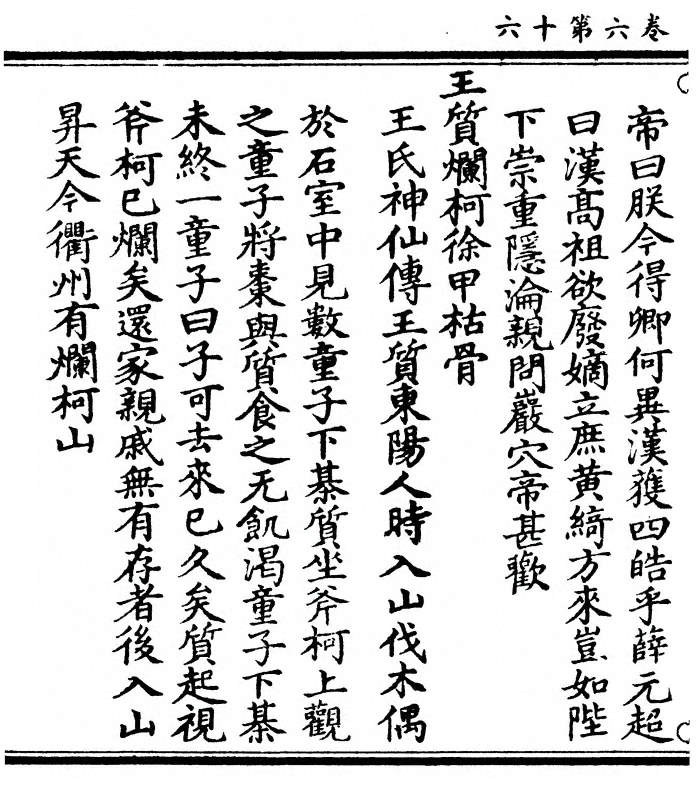 卷六第十六
帝曰朕今得卿何異漢獲四皓乎薛元超
曰漢高祖欲廢嫡立庶黄綺方來豈如陛
下崇重隱淪親問巖穴帝甚歡
王質爛柯徐甲枯骨
王氏神仙傳王質東陽人時入山伐木偶
於石室中見數童子下棊質坐斧柯上觀
之童子將棗與質食之无飢渴童子下棊
未終一童子曰子可去來已久矣質起視
斧柯已爛矣還家親戚無有存者後入山
昇天今衢州有爛柯山